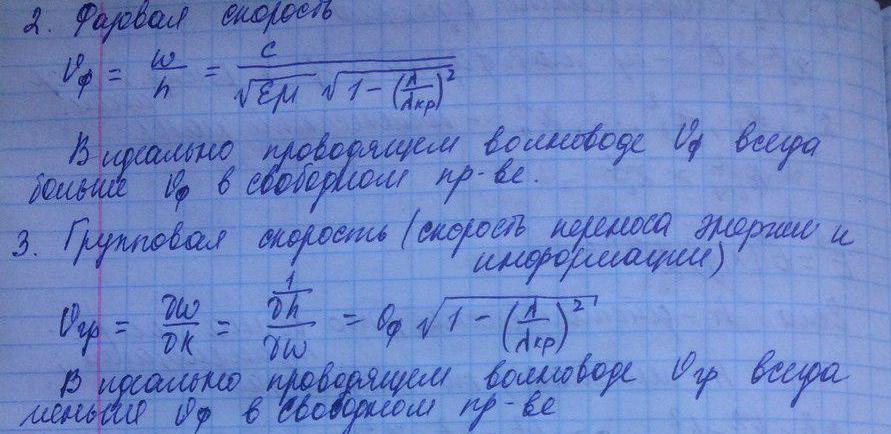 2. Фазовая скорость
υф = ω/h = c / (√εμ √1 − (λ/λкр)²)
В идеально проводящем волноводе υф всегда
больше υф в свободном пр-ве.
3. Групповая скорость (скорость переноса энергии и
информации)
υгр = ∂ω/∂k = 1/(∂h/∂ω) = υф √1 − (λ/λкр)²
В идеально проводящем волноводе υгр всегда
меньше υф в свободном пр-ве